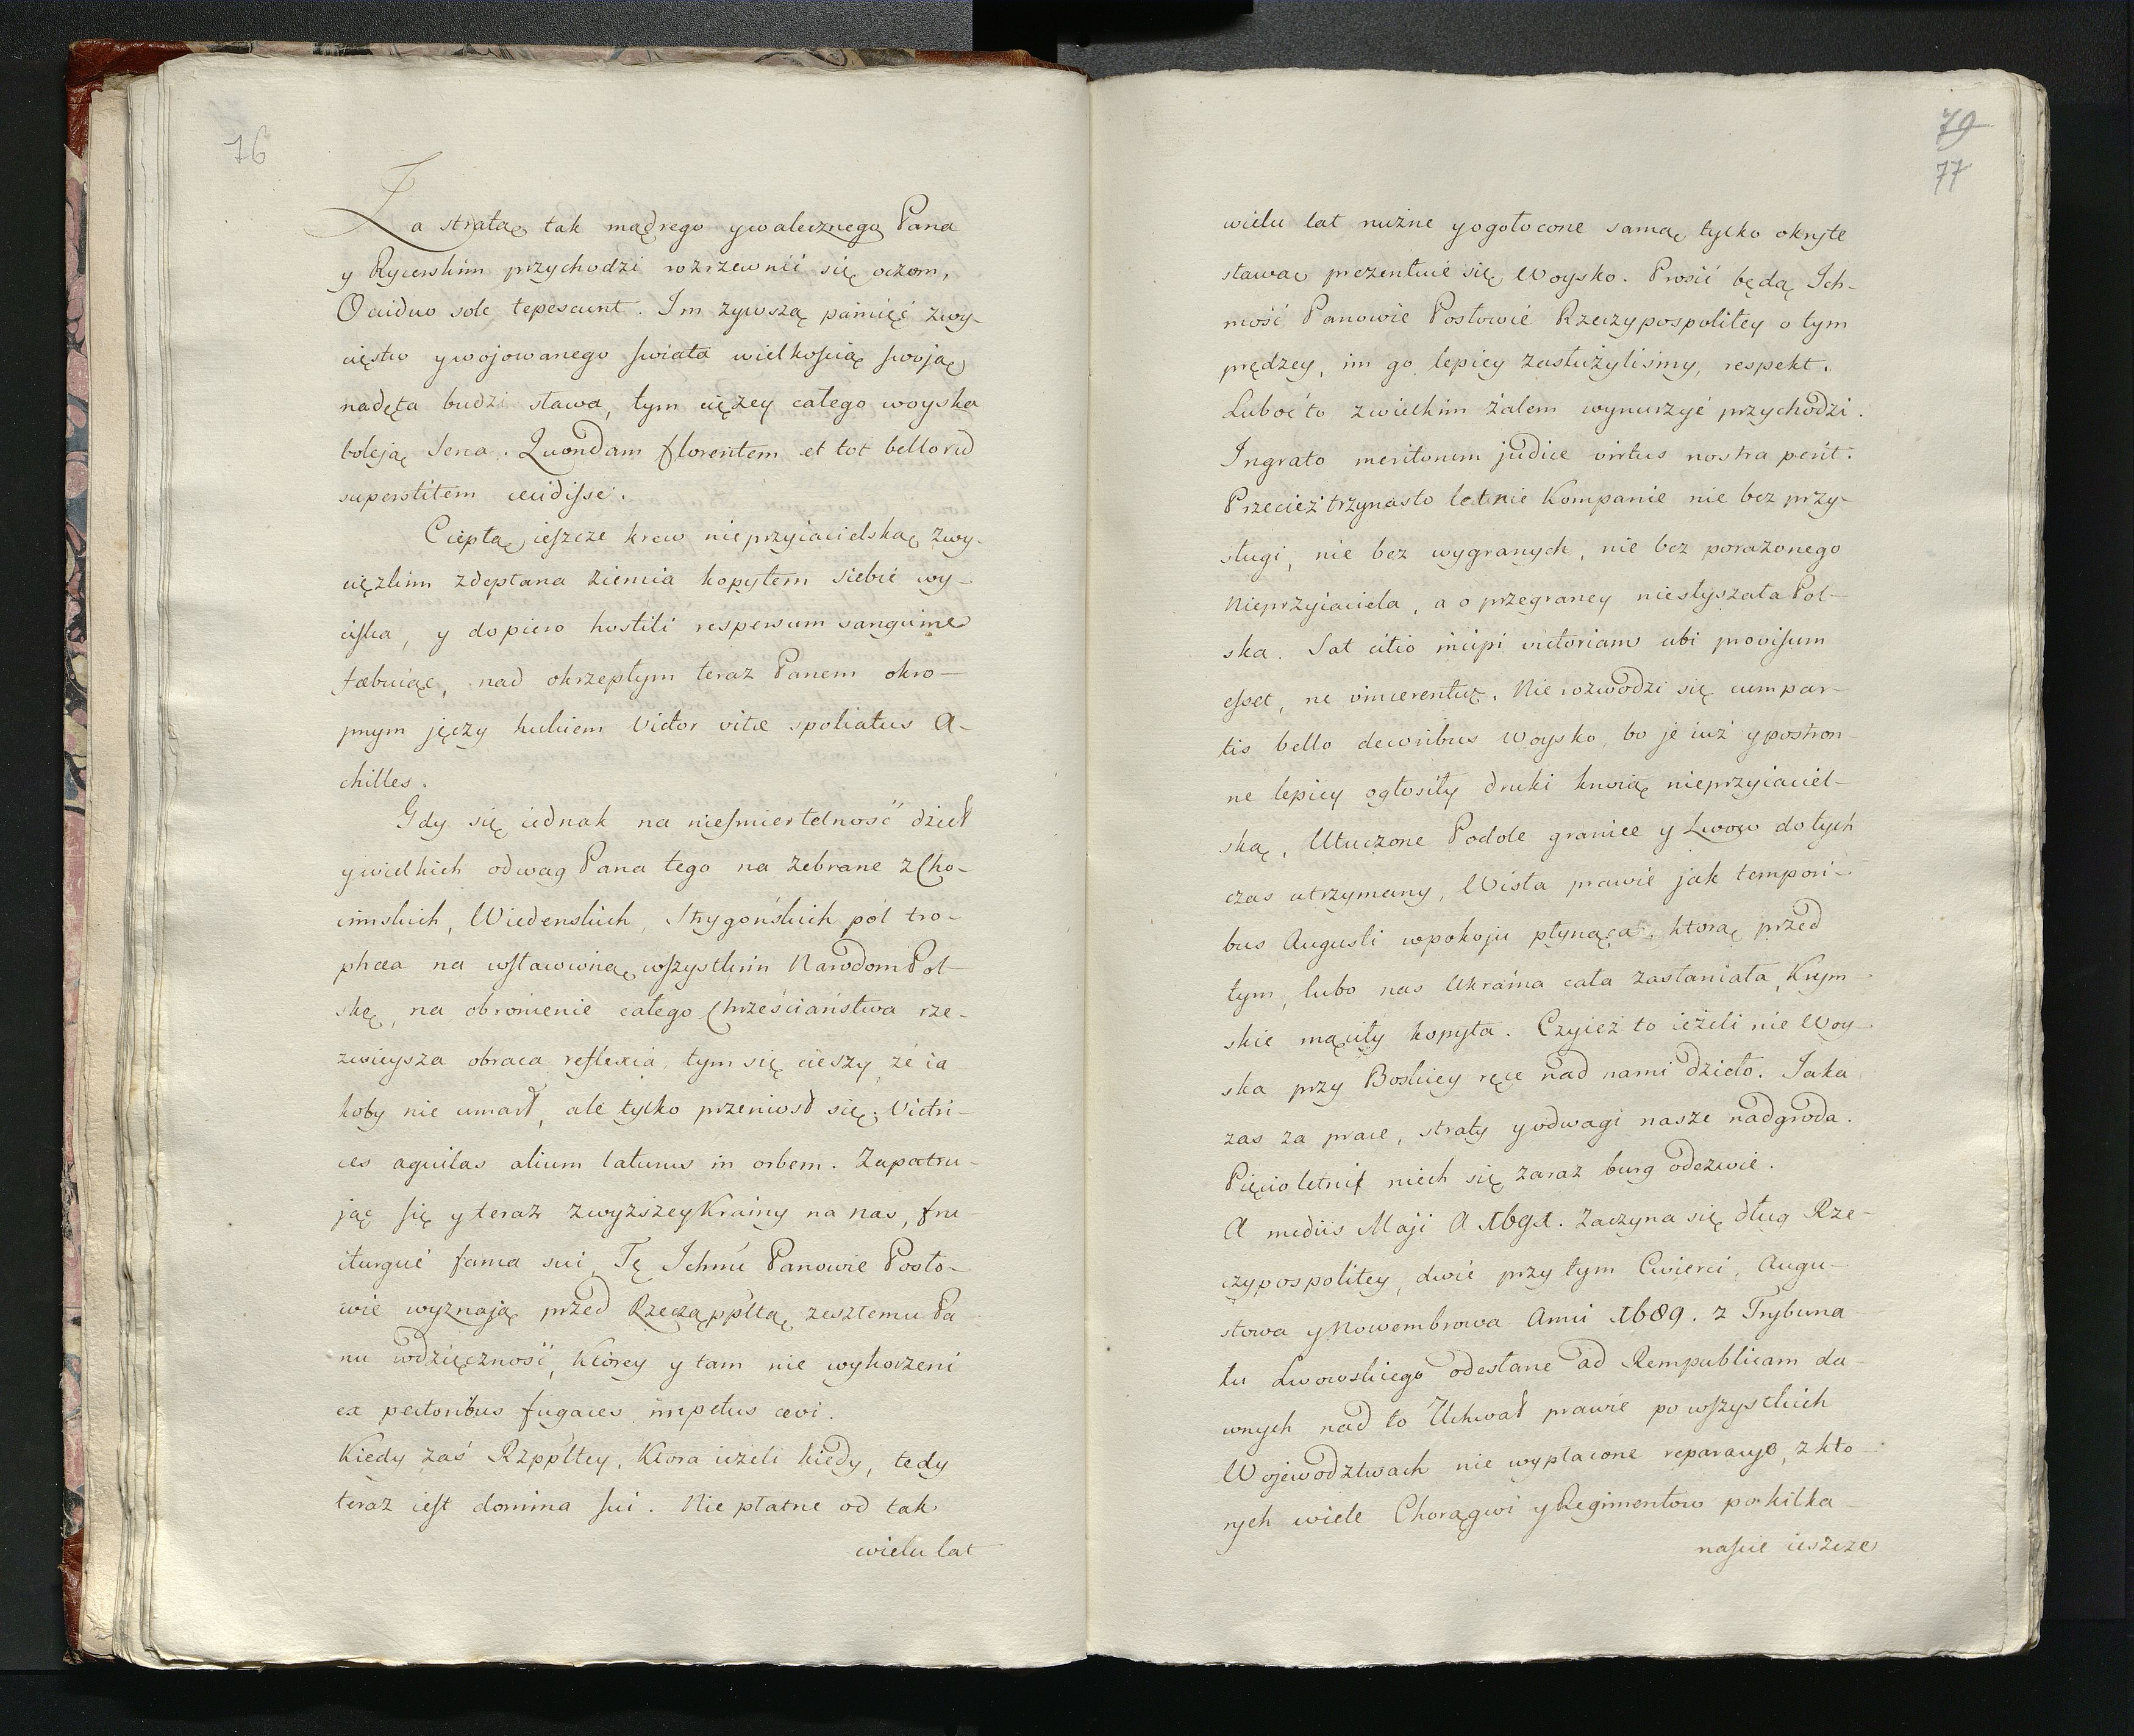 76
Za stratą tak mądrego y walecznego Pana
y Rycerskim przychodzi rozrzewnić się oczom,
Occiduo sole tepescunt. Im żywszą pamięć zwy-
cięstw y wojowanego świata wielkością swoją
nadęta budzi sława, tym ciężey całego woyska
boleją serca. Quondam florentem et tot bellorũ
superstitem cecidisse.
Ciepłą ieszcze krew nieprzyiacielską zwy-
cięzkim zdeptana ziemia kopytem siebie wy-
ciska, y dopiero hostili respersum sanguine
nad okrzepłym teraz Panem okro-
pnym jęczy hukiem Victor vitæ spoliatus A-
chilles.
Gdy się iednak na nieśmiertelność dzieł
y wielkich odwag Pana tego na zebrane z Cho-
cimskich, Wiedenskich, Strygońskich pól tro-
phæa na wsławioną wszystkim Narodom Pol-
skę, na obronienie całego Chrześciaństwa rze-
zwieysza obraca reflexia, tym się cieszy że ia
koby nie umarł, ale tylko przeniosł się. Victri-
ces aquilas alium laturus in orbem. Zapatru-
jąc się y teraz z wyższey Krainy na nas, fru-
iturque fama sui. Tę Ichmć Panowie Posło-
wie wyznają przed Rzecząppltą zeszłemu Pa
nu wdzięczność, ktorey y tam nie wykorzeni
ex pectoribus fugaces impetus ævi.
Kiedy zaś Rzppltey, Ktora ieżeli kiedy, tedy
teraz iest domina sui. Nie płatne od tak
wielu lat
79
77
wielu lat nużne y ogołocone samą tylko okryte
sławą prezentuie się Woysko. Prosić będą Ich-
mość Panowie Posłowie Rzeczypospolitey o tym
prędzey, im go lepiey zasłużyliśmy, respekt.
Luboć to z wielkim żalem wynurzyć przychodzi.
Ingrato meritorum judice virtus nostra perit.
Przecież trzynasto letnie Kompanie nie bez przy-
sługi, nie bez wygranych, nie bez porażonego
Nieprzyiaciela, a o przegraney niesłyszała Pol-
ska. Sat citio incipi victoriam ubi provisum
esset, ne vincerentur. Nie rozwodzi się cum par-
tis bello decoribus Woysko, bo je iuż y postron-
ne lepiey ogłosiły druki krwią nieprzyiaciel-
ską. Utuczone Podole granice y Lwow do tych
czas utrzymany, Wisła prawie jak tempori-
bus Augusti w pokoju płynąca, ktorą przed
tym, lubo nas Ukraina cała zasłaniała, Krym-
skie mąciły kopyta. Czyież to ieżeli nie Woy-
ska przy Boskiey ręce nad nami dzieło. Jaka
zas za prace, straty y odwagi nasze nadgroda.
Pięcioletni niech się zaraz burg odezwie.
A mediis Maji A 1691. Zaczyna się dług Rze-
czypospolitey, dwie przy tym Cwierci, Augu-
stowa y Nowembrowa Anni 1689. z Trybuna
łu Lwowskiego odesłane ad Rempublicam da-
wnych nad to Uchwał prawie po wszystkich
Wojewodztwach nie wypłacone z kto-
rych wiele Chorągwi y Regimentow po kilka
naście ieszcze